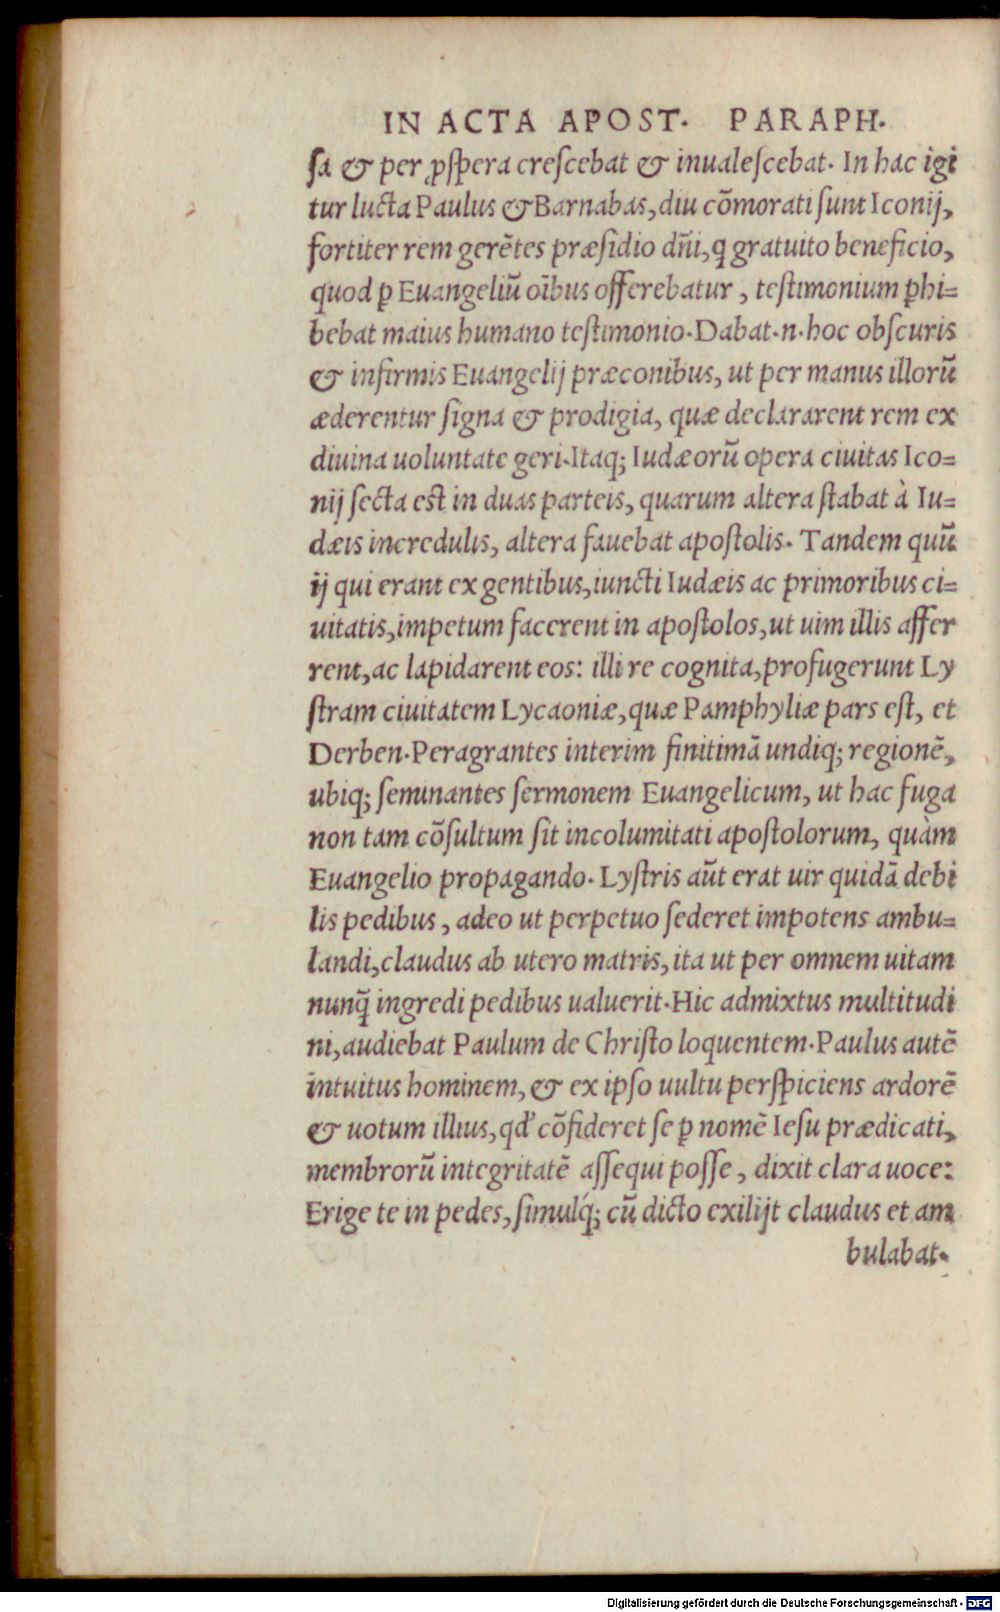 IN ACTA APOST. PARAPH.
sa & per ꝓspera crescebat & inualescebat. In hac igi
tur lucta Paulus & Barnabas, diu cōmorati sunt Iconij,
fortiter rem gerētes præsidio dñi, q gratuito beneficio,
quod ꝑ Euangeliū oībus offerebatur, testimonium ꝑhi-
bebat maius humano testimonio. Dabat.n.hoc obscuris
& infirmis Euangelij præconibus, ut per manus illorū
æderentur signa & prodigia, quæ declararent rem ex
diuina uoluntate geri. Itaq; Iudæorū opera ciuitas Ico-
nij secta est in duas parteis, quarum altera stabat à Iu-
dæis incredulis, altera fauebat apostolis. Tandem quū
ij qui erant ex gentibus, iuncti Iudæis ac primoribus ci-
uitatis, impetum facerent in apostolos, ut uim illis affer
rent, ac lapidarent eos: illi re cognita, profugerunt Ly
stram ciuitatem Lycaoniæ, quæ Pamphyliæ pars est, et
Derben. Peragrantes interim finitimā undiq; regionē,
ubiq; seminantes sermonem Euangelicum, ut hac fuga
non tam cōsultum sit incolumitati apostolorum, quàm
Euangelio propagando. Lystris aūt erat uir quidā debi
lis pedibus, adeo ut perpetuo sederet impotens ambu-
landi, claudus ab utero matris, ita ut per omnem uitam
nunq̃ ingredi pedibus ualuerit. Hic admixtus multitudi
ni, audiebat Paulum de Christo loquentem. Paulus autē
intuitus hominem, & ex ipso uultu perspiciens ardorē
& uotum illius, qd' cōfideret se ꝑ nomē Iesu prædicati,
membrorū integritatē assequi posse, dixit clara uoce:
Erige te in pedes, simulq́; cū dicto exilijt claudus et am
bulabat.
Digitalisierung gefördert durch die Deutsche Forschungsgemeinschaft - DFG